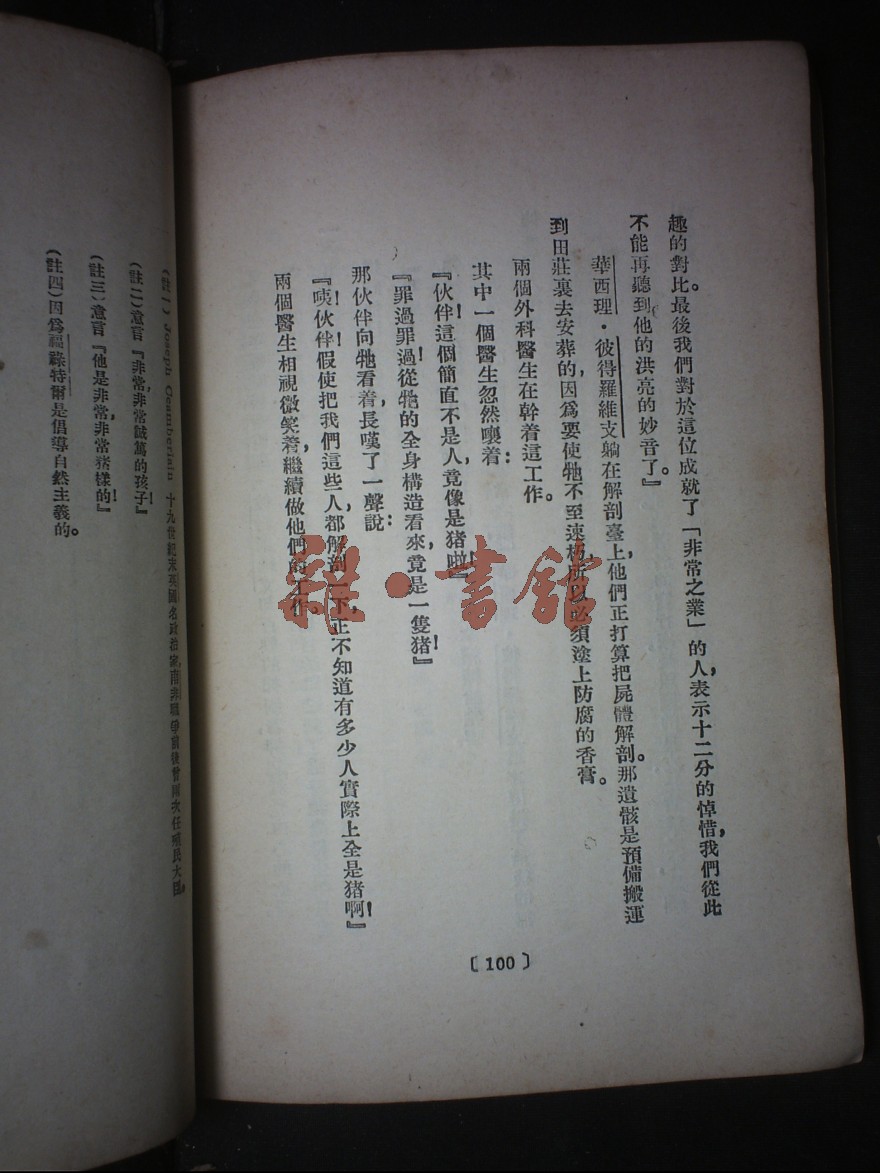 趣的對比。最後我們對於這位成就了「非常之業」的人，表示十二分的悼惜，我們從此
不能再聽到他的洪亮的妙音了。』
華西理・彼得羅維支躺在解剖臺上，他們正打算把屍體解剖。那遺骸是預備搬運
到田莊裏去安葬的，因爲要使牠不至速朽，所以必須塗上防腐的香膏。
兩個外科醫生在幹着這工作。
其中一個醫生忽然嚷着：
『伙伴！這個簡直不是人，竟像是猪啦』
『罪過罪過！從牠的全身構造看來，竟是一隻猪！』
那伙伴向牠看着，長嘆了一聲說：
『咦！伙伴！假使把我們這些人都解剖一下，正不知道有多少人實際上全是猪啊！』
兩個醫生相視微笑着，繼續做他們的工作。
〔100〕
(註一) Joseph Ceamberlain 十九世紀末英國名政治家，南非戰爭前後曾兩次任殖民大臣。
(註二)意言『非常，非常誠篤的孩子！』
(註三)意言『他是非常，非常猪樣的！』
(註四)因爲福祿特爾是倡導自然主義的。
雜・書館